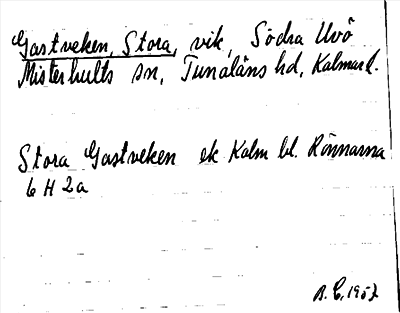 Gastveken, Stora, vik, Södra Uvö
Misterhults sn, Tunaläns hd, Kalmar l.
Stora Gastveken ek Kalm bl. Rönnarna
6 H 2a